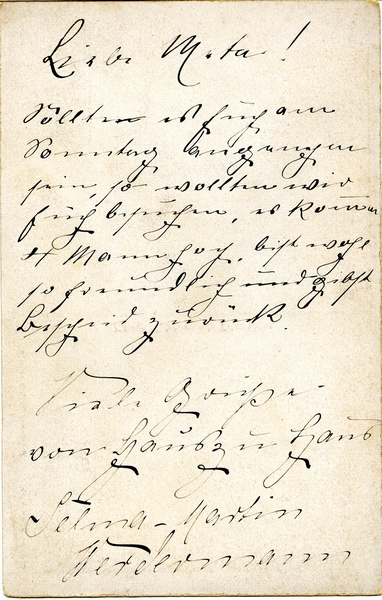 Liebe Meta!
Sollten es Euch am
Sonntag angenehm
sein, so wollten wir
Euch besuchen, es komm̅en
4 Mann hoch, bist wohl
so freundlich und gibst
Bescheid zurück.
Viele Grüße
von Haus zu Haus
Selma-Martin
Werdermann